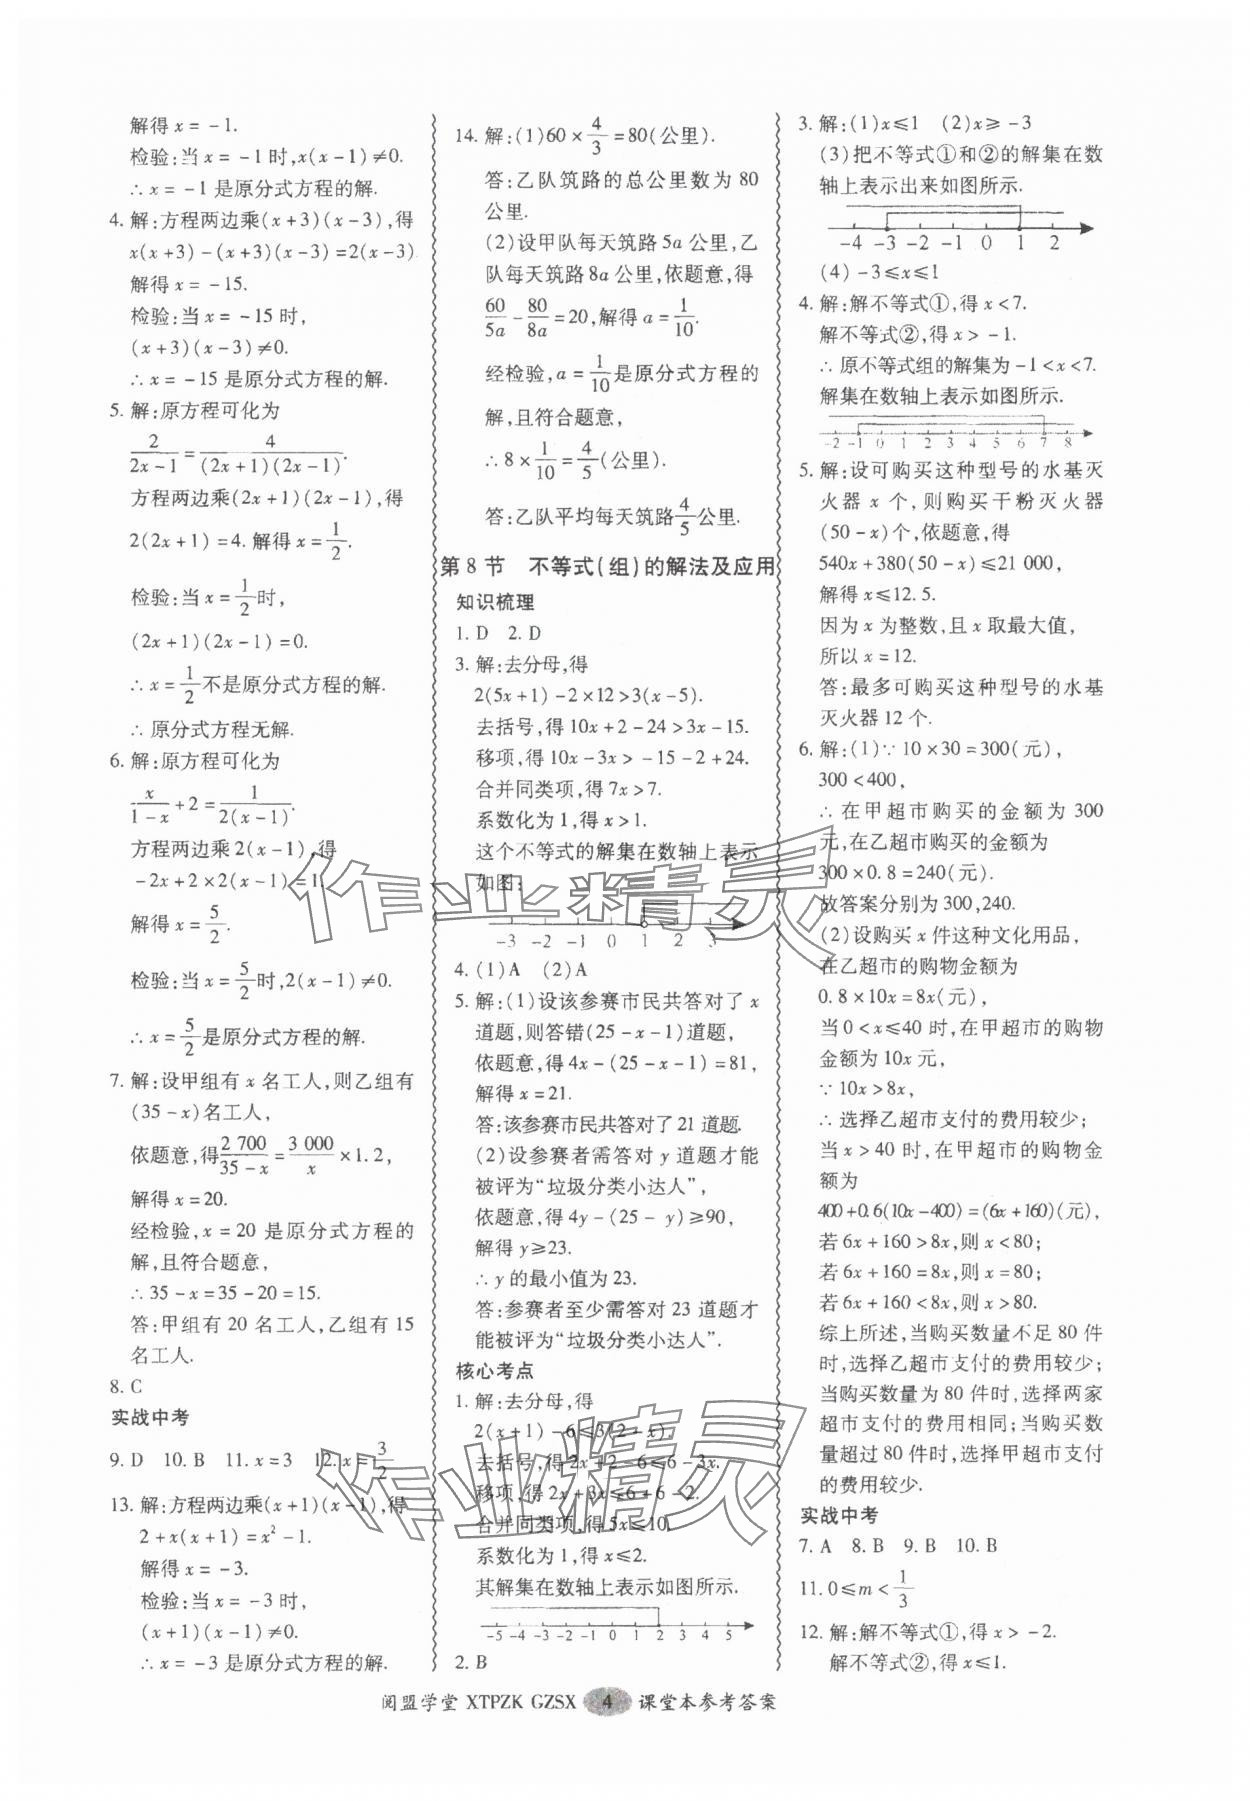 解得 x = -1.
检验:当 x = -1 时,x(x-1)≠0.
∴ x = -1 是原分式方程的解.
4. 解:方程两边乘(x+3)(x-3),得
x(x+3)-(x+3)(x-3)=2(x-3)
解得 x = -15.
检验:当 x = -15 时,
(x+3)(x-3)≠0.
∴ x = -15 是原分式方程的解.
5. 解:原方程可化为
2/(2x-1) = 4/((2x+1)(2x-1)).
方程两边乘(2x+1)(2x-1),得
2(2x+1)=4. 解得 x = 1/2.
检验:当 x = 1/2 时,
(2x+1)(2x-1)=0.
∴ x = 1/2 不是原分式方程的解.
∴ 原分式方程无解.
6. 解:原方程可化为
x/(1-x) + 2 = 1/(2(x-1)).
方程两边乘 2(x-1),得
-2x+2×2(x-1)=1.
解得 x = 5/2.
检验:当 x = 5/2 时,2(x-1)≠0.
∴ x = 5/2 是原分式方程的解.
7. 解:设甲组有 x 名工人,则乙组有
(35-x)名工人,
依题意,得 2 700/(35-x) = 3 000/x ×1.2,
解得 x = 20.
经检验,x = 20 是原分式方程的
解,且符合题意,
∴ 35-x=35-20=15.
答:甲组有 20 名工人,乙组有 15
名工人.
8. C
实战中考
9. D 10. B 11. x = 3 12. x = 3/2
13. 解:方程两边乘(x+1)(x-1),得
2+x(x+1)=x²-1.
解得 x = -3.
检验:当 x = -3 时,
(x+1)(x-1)≠0.
∴ x = -3 是原分式方程的解.
14. 解:(1)60×4/3=80(公里).
答:乙队筑路的总公里数为 80
公里.
(2)设甲队每天筑路 5a 公里,乙
队每天筑路 8a 公里,依题意,得
60/5a - 80/8a = 20,解得 a = 1/10.
经检验,a = 1/10 是原分式方程的
解,且符合题意,
∴ 8×1/10=4/5(公里).
答:乙队平均每天筑路 4/5 公里.
第 8 节 不等式(组)的解法及应用
知识梳理
1. D 2. D
3. 解:去分母,得
2(5x+1)-2×12>3(x-5).
去括号,得 10x+2-24>3x-15.
移项,得 10x-3x>-15-2+24.
合并同类项,得 7x>7.
系数化为 1,得 x>1.
这个不等式的解集在数轴上表示
如图:
-3 -2 -1 0 1 2 3
4. (1)A (2)A
5. 解:(1)设该参赛市民共答对了 x
道题,则答错(25-x-1)道题,
依题意,得 4x-(25-x-1)=81,
解得 x = 21.
答:该参赛市民共答对了 21 道题.
(2)设参赛者需答对 y 道题才能
被评为“垃圾分类小达人”,
依题意,得 4y-(25-y)≥90,
解得 y≥23.
∴ y 的最小值为 23.
答:参赛者至少需答对 23 道题才
能被评为“垃圾分类小达人”.
核心考点
1. 解:去分母,得
2(x+1)-6≤3(2-x).
去括号,得 2x+2-6≤6-3x.
移项,得 2x+3x≤6+6-2.
合并同类项,得 5x≤10.
系数化为 1,得 x≤2.
其解集在数轴上表示如图所示.
-5 -4 -3 -2 -1 0 1 2 3 4 5
2. B
3. 解:(1)x≤1 (2)x≥-3
(3)把不等式①和②的解集在数
轴上表示出来如图所示.
-4 -3 -2 -1 0 1 2
(4) -3≤x≤1
4. 解:解不等式①,得 x<7.
解不等式②,得 x>-1.
∴ 原不等式组的解集为 -1<x<7.
解集在数轴上表示如图所示.
-2 -1 0 1 2 3 4 5 6 7 8
5. 解:设可购买这种型号的水基灭
火器 x 个,则购买干粉灭火器
(50-x)个,依题意,得
540x+380(50-x)≤21 000,
解得 x≤12.5.
因为 x 为整数,且 x 取最大值,
所以 x = 12.
答:最多可购买这种型号的水基
灭火器 12 个.
6. 解:(1)∵ 10×30=300(元),
300<400,
∴ 在甲超市购买的金额为 300
元,在乙超市购买的金额为
300×0.8=240(元).
故答案分别为 300,240.
(2)设购买 x 件这种文化用品,
在乙超市的购物金额为
0.8×10x=8x(元),
当 0<x≤40 时,在甲超市的购物
金额为 10x 元,
∵ 10x>8x,
∴ 选择乙超市支付的费用较少;
当 x>40 时,在甲超市的购物金
额为
400+0.6(10x-400)=(6x+160)(元),
若 6x+160>8x,则 x<80;
若 6x+160=8x,则 x=80;
若 6x+160<8x,则 x>80.
综上所述,当购买数量不足 80 件
时,选择乙超市支付的费用较少;
当购买数量为 80 件时,选择两家
超市支付的费用相同;当购买数
量超过 80 件时,选择甲超市支付
的费用较少.
实战中考
7. A 8. B 9. B 10. B
11. 0≤m<1/3
12. 解:解不等式①,得 x>-2.
解不等式②,得 x≤1.
阅盟学堂 XTPZK GZSX 4 课堂本参考答案
作业精灵
作业精灵